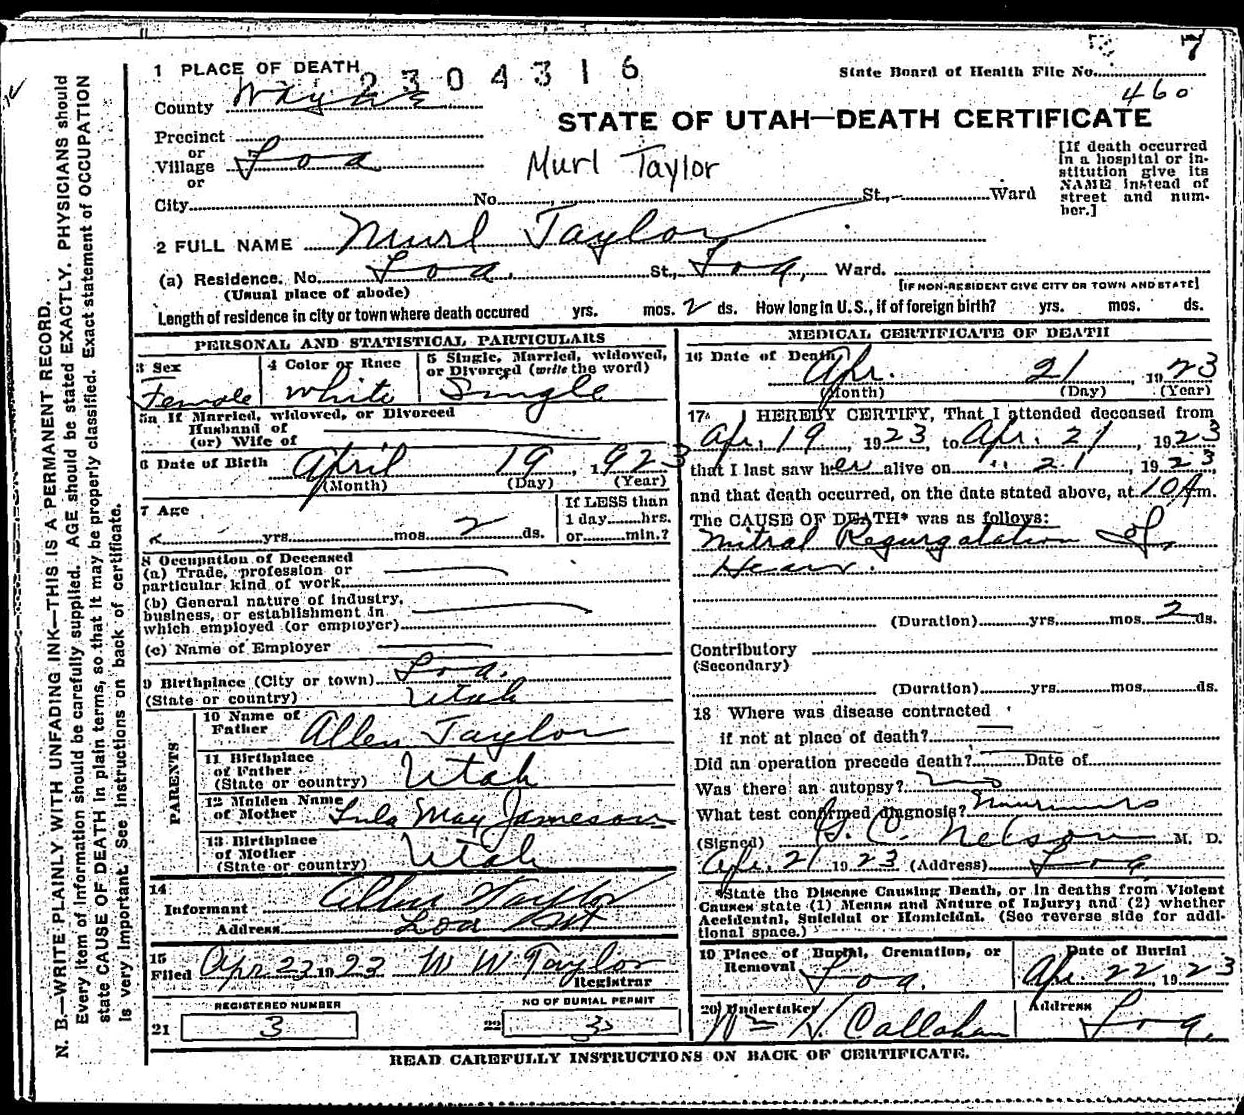 7
State Board of Health File No.
460
1 PLACE OF DEATH 2304316
County Wayne
STATE OF UTAH—DEATH CERTIFICATE
Precinct
or
Village Loa
or
City No. St., Ward
Murl Taylor
[If death occurred
in a hospital or in-
stitution give its
NAME instead of
street and num-
ber.]
2 FULL NAME Murl Taylor
(a) Residence. No. Loa. St., Loa, Ward.
(Usual place of abode)
[IF NON-RESIDENT GIVE CITY OR TOWN AND STATE]
Length of residence in city or town where death occured yrs. mos. 2 ds. How long in U. S., if of foreign birth? yrs. mos. ds.
PERSONAL AND STATISTICAL PARTICULARS
3 Sex
Female
4 Color or Race
White
5 Single, Married, widowed,
or Divorced (write the word)
Single
5a If Married, widowed, or Divorced
Husband of
(or) Wife of
6 Date of Birth April 19, 1923
(Month) (Day) (Year)
7 Age
yrs. mos 2 ds.
If LESS than
1 day hrs.
or min.?
8 Occupation of Deceased
(a) Trade, profession or
particular kind of work
(b) General nature of industry,
business, or establishment in
which employed (or employer)
(c) Name of Employer
9 Birthplace (City or town) Loa.
(State or country) Utah
PARENTS
10 Name of
Father Allen Taylor
11 Birthplace
of Father
(State or country) Utah
12 Maiden Name
of Mother Lula May Jameson
13 Birthplace
of Mother
(State or country) Utah
14
Informant Allen Taylor
Address Loa Ut
15
Filed Apr 22 1923 W W Taylor
Registrar
REGISTERED NUMBER
21 3
NO OF BURIAL PERMIT
22 3
MEDICAL CERTIFICATE OF DEATH
16 Date of Death Apr. 21, 1923
(Month) (Day) (Year)
17 I HEREBY CERTIFY, That I attended deceased from
Apr. 19, 1923, to Apr. 21, 1923
that I last saw her alive on " 21, 1923,
and that death occurred, on the date stated above, at 10 A m.
The CAUSE OF DEATH* was as follows:
Mitral Regurgatation of
Heart.
(Duration) yrs. mos. 2 ds.
Contributory
(Secondary)
(Duration) yrs. mos. ds.
18 Where was disease contracted
if not at place of death?
Did an operation precede death? Date of
Was there an autopsy? no
What test confirmed diagnosis? Murmurs
(Signed) G. C. Nelson M. D.
Apr. 21 1923 (Address) Loa
*State the Disease Causing Death, or in deaths from Violent
Causes state (1) Menns and Nature of Injury; and (2) whether
Accidental, Suicidal or Homicidal. (See reverse side for addi-
tional space.)
19 Place of Burial, Cremation, or
Removal Loa.
Date of Burial
Apr. 22, 1923
20 Undertaker
Wm H. Callahan
Address
Loa.
READ CAREFULLY INSTRUCTIONS ON BACK OF CERTIFICATE.
N. B.—WRITE PLAINLY WITH UNFADING INK—THIS IS A PERMANENT RECORD.
Every item of information should be carefully supplied. AGE should be stated EXACTLY. PHYSICIANS should
state CAUSE OF DEATH in plain terms, so that it may be properly classified. Exact statement of OCCUPATION
is very important. See instructions on back of certificate.